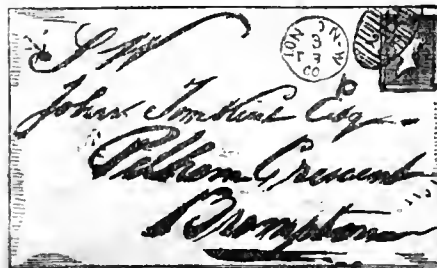 S W
LONDON W.C
FE 3
60
John Tomkins Esq
Pelham Crescent
Brompton